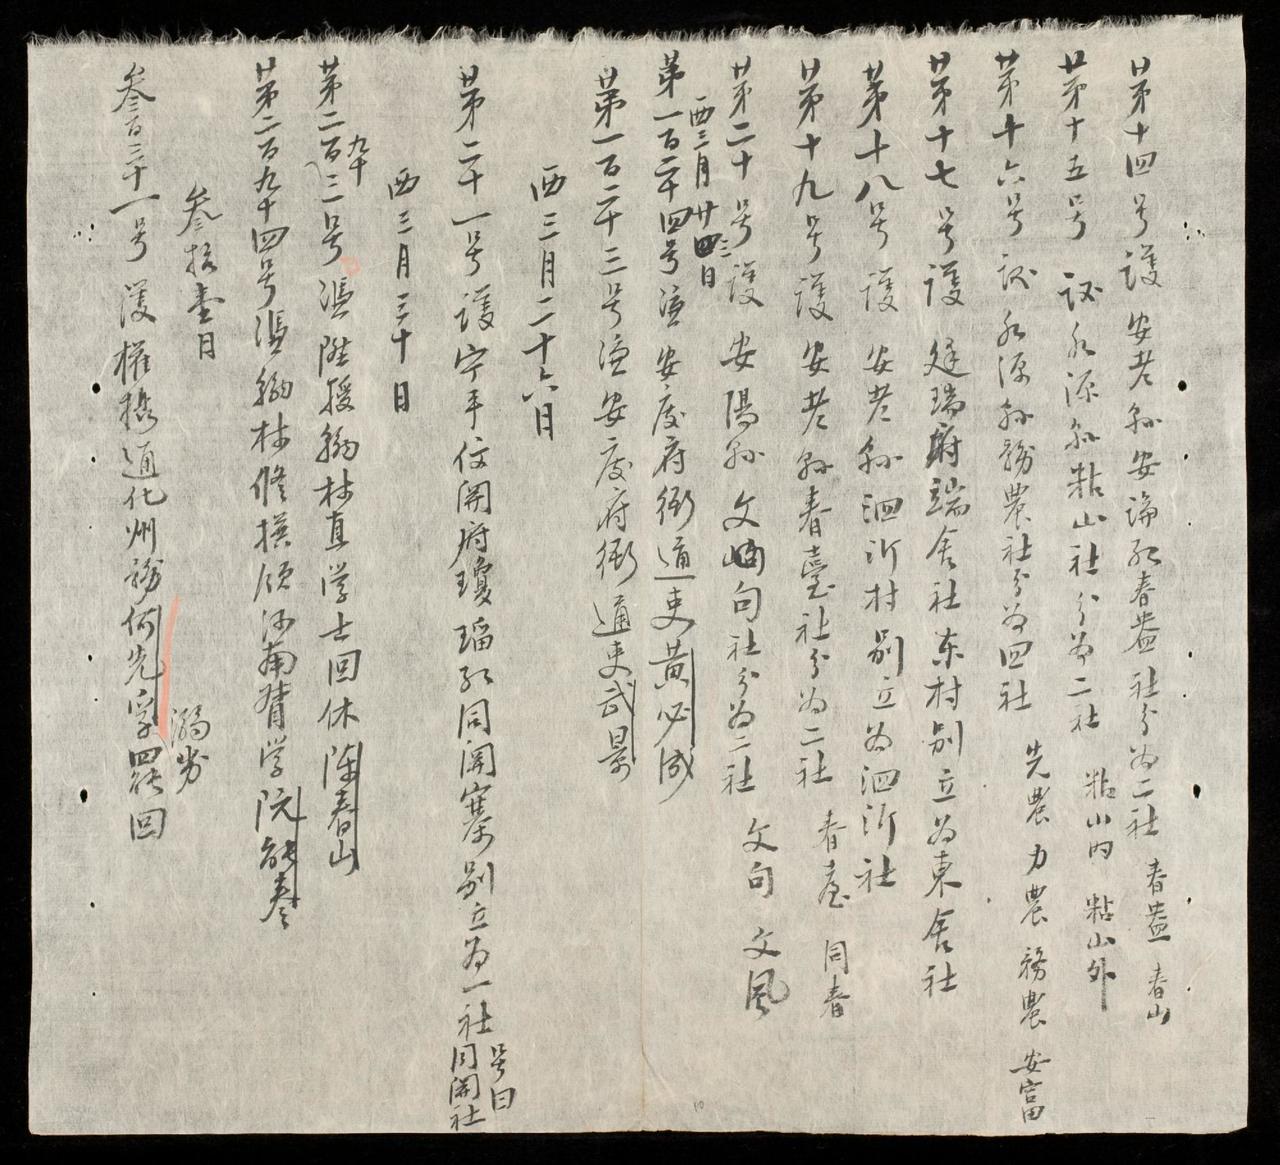 廿第十四号 護 安老 安 春盎社分为二社 春盎 春山
廿第十五号 永源 粘山社分為二社 粘山内 粘山外
廿第十六号 永源 務農社分为四社 先農 力農 務農 安富
廿第十七号 護 廷瑞府瑞舍社东村别立为東舍社
廿第十八号 護 安老 泗沂村别立为泗沂社
廿第十九号 護 安老 春臺社分为二社 春臺 同春
廿第二十号 護 安陽 文 句社分为二社 文句 文風
西三月廿四日
第一百二十四号 安慶府衙通吏黄必成
廿第一百二十三号 安慶府衙通吏武景
西三月二十六日
廿第二十一号 護 寧平 開府瓊瑙 同開寨别立为一社号曰同開社
西三月三十日
第二百九十三号 憑 陞授翰林直学士回休陳春山
廿第二百九十四号 憑 翰林修撰領河南督学阮能奏
叁拾壹日
叁百三十一号 護 權 通化州務何先孚 回